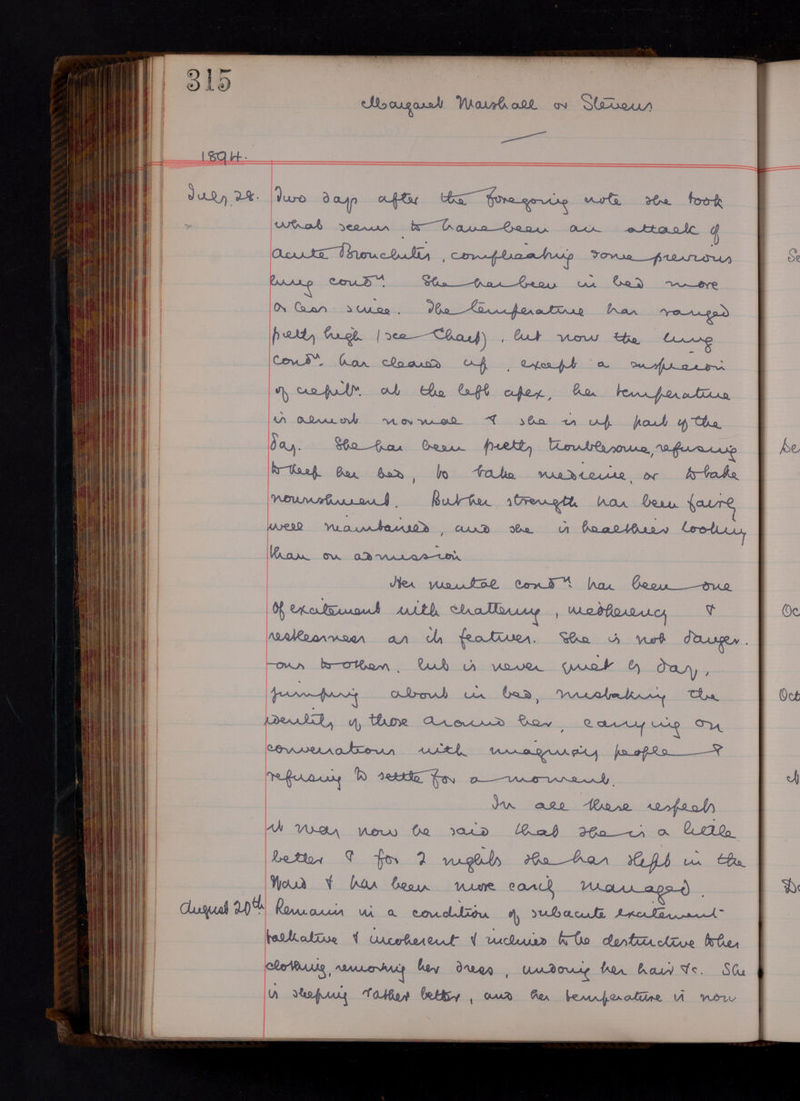 315
Margaret Marshall or Stevens
1894.
July 28. Two days after the foregoing note she took
what seems to have been an attack of
acute Bronchitis, complicating some previous
lung condn. She has been in bed more
or less since. The temperature has ranged
pretty high (see Chart), but now the lung
condn. has cleared up, except a suspicion
of crepitn. at the left apex, her temperature
is almost normal & she is up part of the
day. She has been pretty troublesome, refusing
to keep her bed, to take medicine, or to take
nourishment. But her strength has been fairly
well maintained, and she is healthier looking
than on admission
Her mental condn. has been one
of excitement with chattering, incoherency &
restlessness as its features. She is not danger-
-ous to others, but is never quiet by day,
jumping about in bed, mistaking the
identity of those around her, carrying on
conversations with imaginary people &
refusing to settle for a moment.
In all these respects
it may now be said that she is a little
better & for 2 nights she has slept in the
Ward & has been more easily managed.
August 20th Remains in a condition of subacute excitement-
talkative & incoherent & inclined to be destructive to her
clothing, removing her dress, undoing her hair &c. She
is sleeping rather better, and her temperature is now
Se
be
Oc
Oct